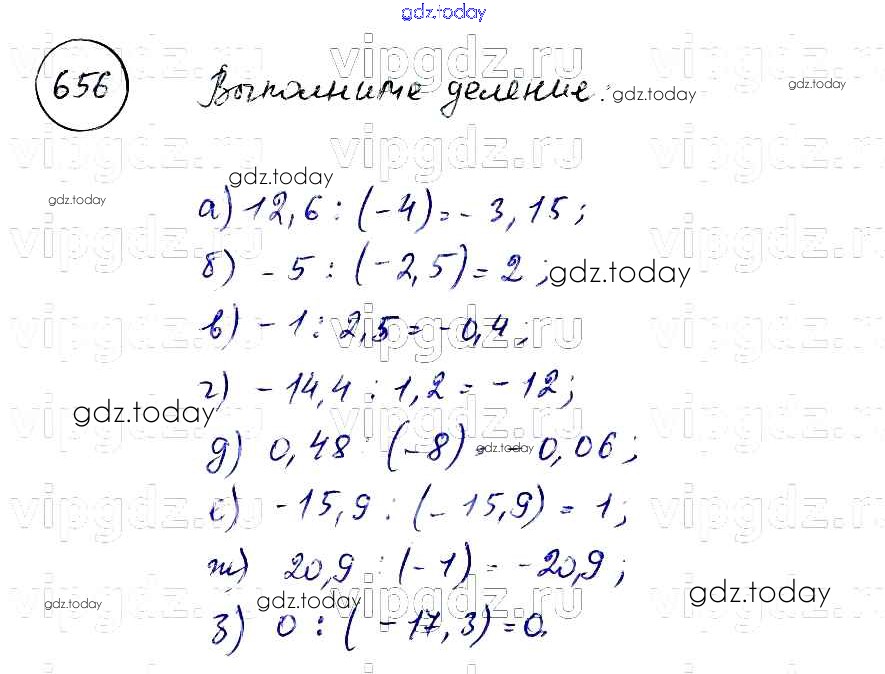 gdz.today
656 Выполните деление: gdz.today gdz.today
vipgdz.ru vipgdz.ru vipgdz.ru
gdz.today
gdz.today
а) 12,6 : (-4) = - 3,15;
б) - 5 : (-2,5) = 2; gdz.today
в) - 1 : 2,5 = -0,4;
г) - 14,4 : 1,2 = - 12;
gdz.today
д) 0,48 : (-8) = gdz.today - 0,06;
е) -15,9 : (-15,9) = 1;
ж) 20,9 : (-1) = -20,9;
gdz.today gdz.today gdz.today
з) 0 : (-17,3) = 0.